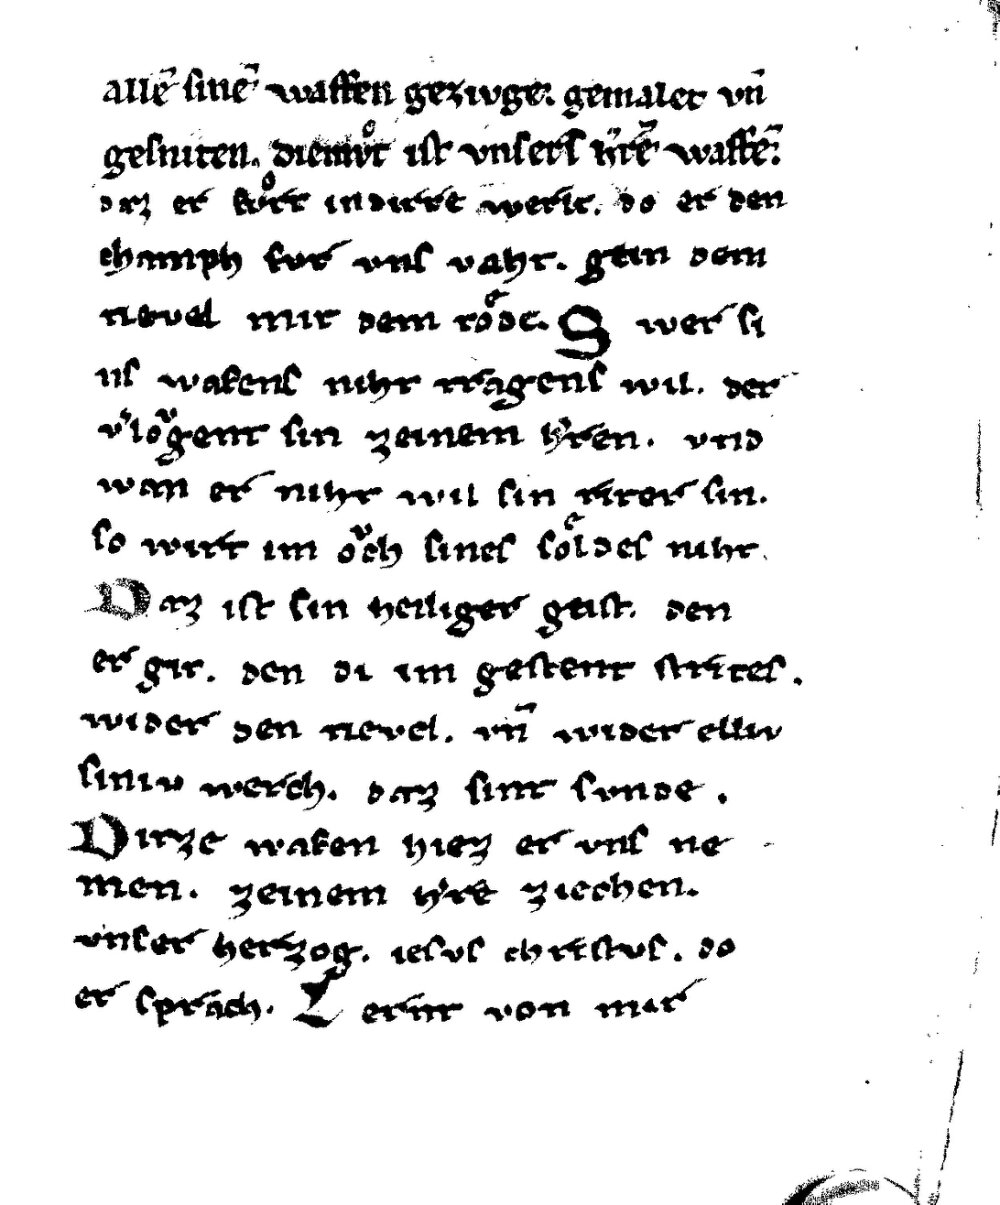 allē sinē waffen geziuge. gemalet vn̄
gesniten. diemuͦt ist vnsers h̾rē waffē.
daz er fuͦrt in dirre werlt. do er den
champh fur uns vaht. gein dem
tievel mit dem toͤde. Swer si
ns wafens niht tragens wil. der
v̾loͮgent sin zeinem h̾ren. vnd
wan er niht wil sin riter sin.
so wirt im oͮch sines soͤldes niht.
Daz ist sin heiliger geist. den
er git. den di im gestent strites.
wider den tievel. vn̄ wider elliv
siniv werch. daz sint sunde.
Ditze wafen hiez er uns ne
men. zeinem h̾rē ziechen.
vnser herzog. iesus christus. do
er sprach. Lernt von mir